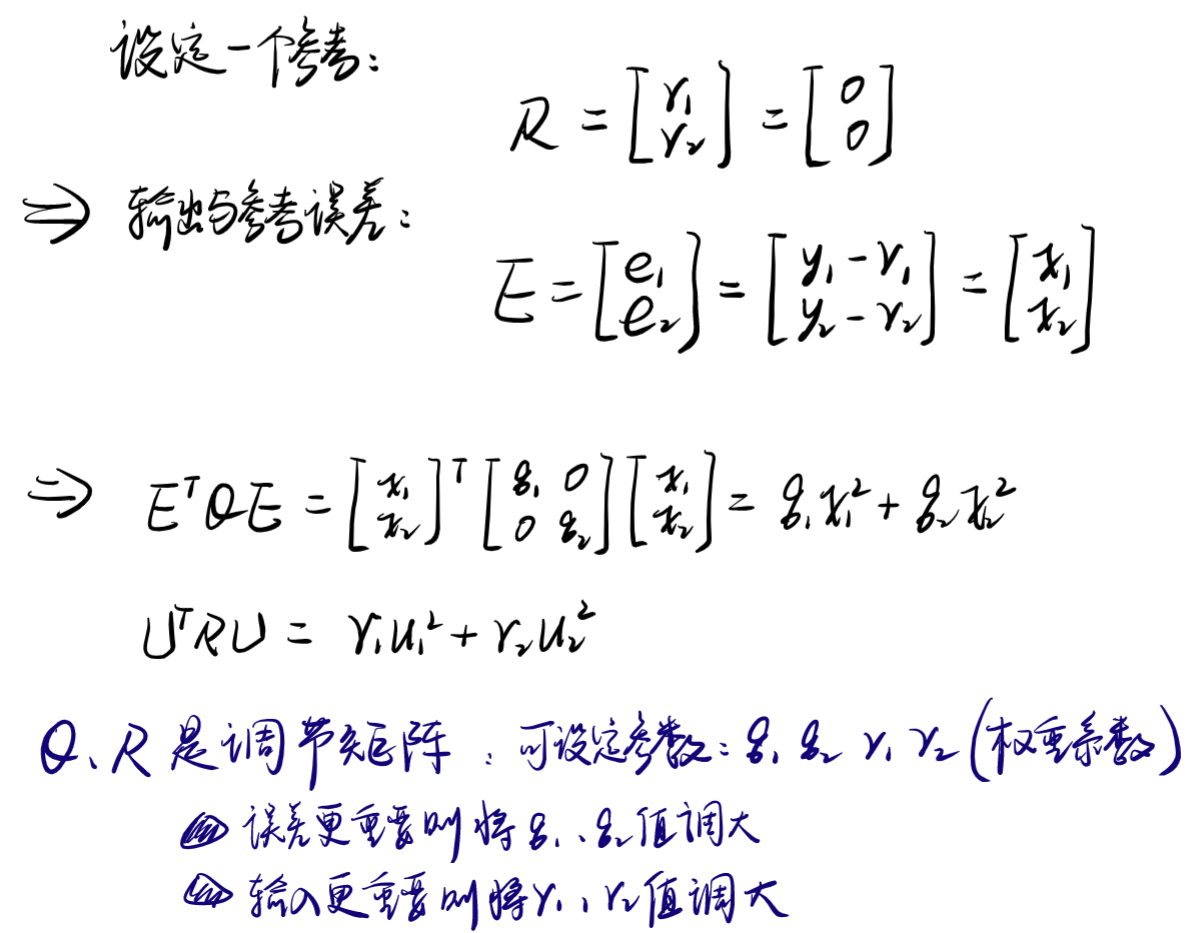 设定一个参考:
R = [r₁ r₂] = [0 0]
⇒ 输出与参考误差:
E = [e₁ e₂] = [y₁ - r₁ y₂ - r₂] = [x₁ x₂]
⇒ EᵀQE = [x₁ x₂]ᵀ [q₁ 0 0 q₂] [x₁ x₂] = q₁x₁² + q₂x₂²
UᵀRU = r₁u₁² + r₂u₂²
Q、R 是调节矩阵,可设定参数: q₁ q₂ r₁ r₂ (权重系数)
误差更重要则将 q₁、q₂值调大
输入更重要则将 r₁、r₂值调大